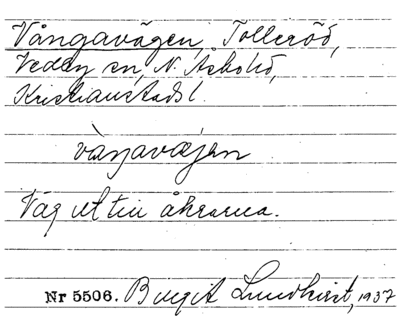 Vångavägen, Tolleröd,
Vedby sn, N. Åsbohd,
Kristianstads l.
vàŋavæjen
Väg ut till åkrarna.
Nr 5506. Birgit Lundkvist, 1937